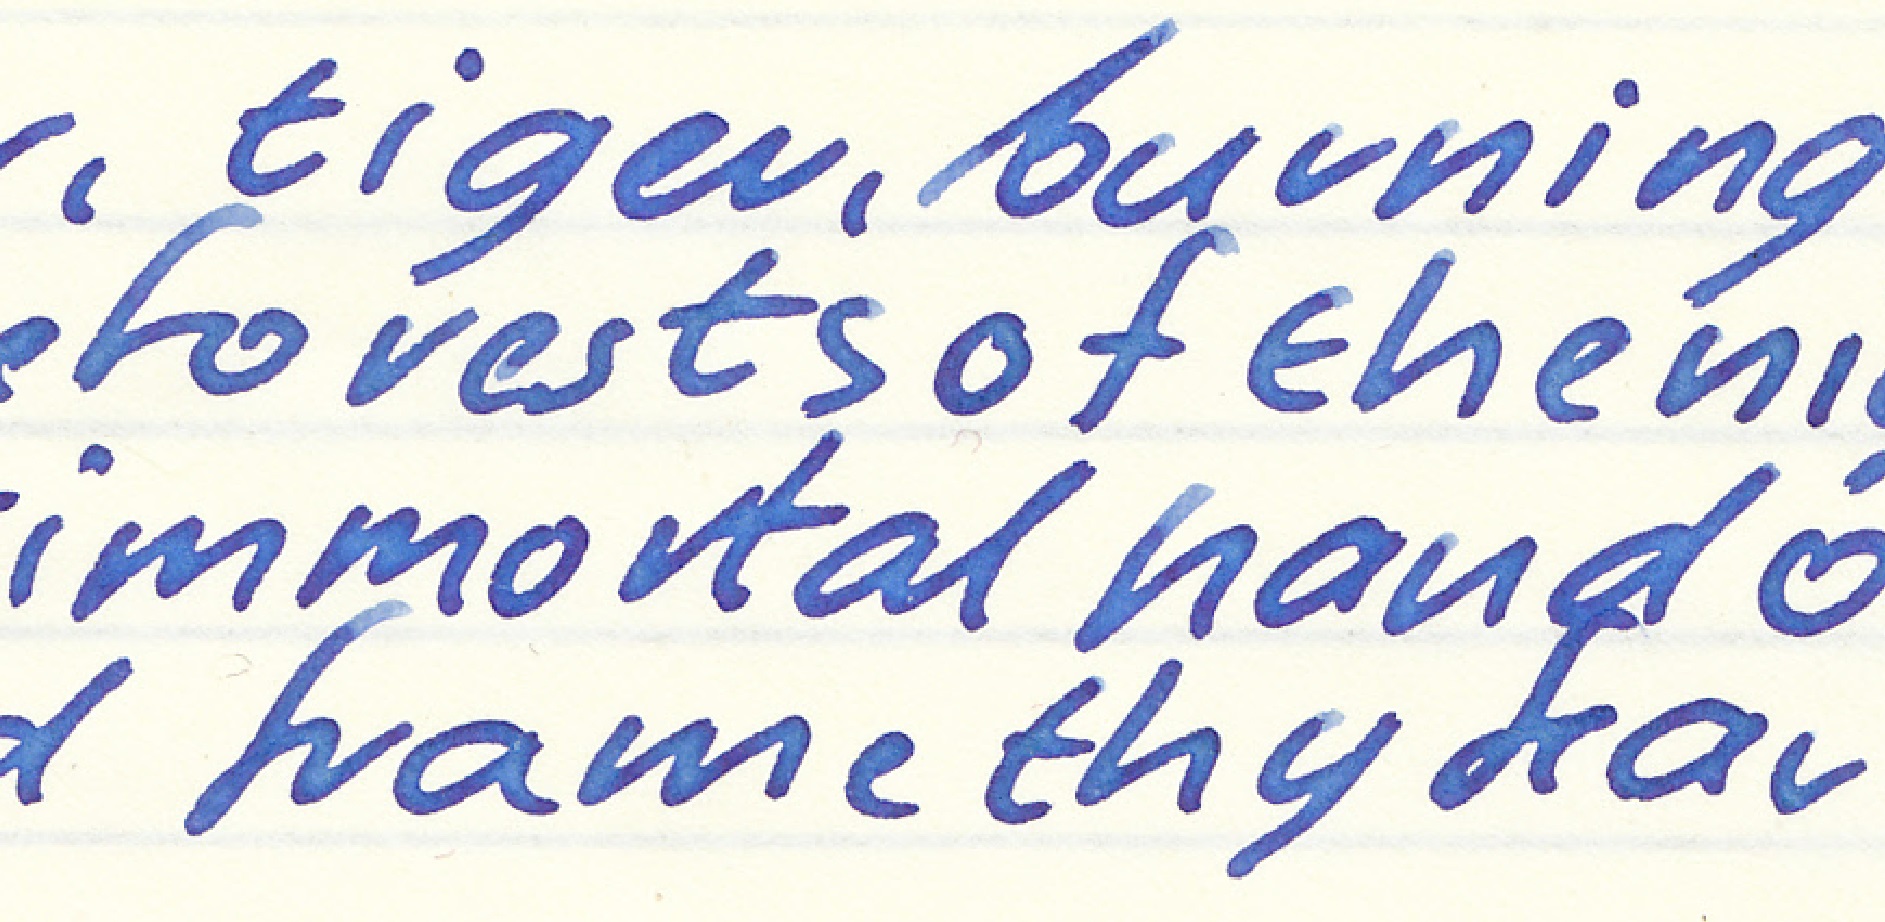 r, tiger, burning
e forests of the ni
immortal hand o
d frame thy fear